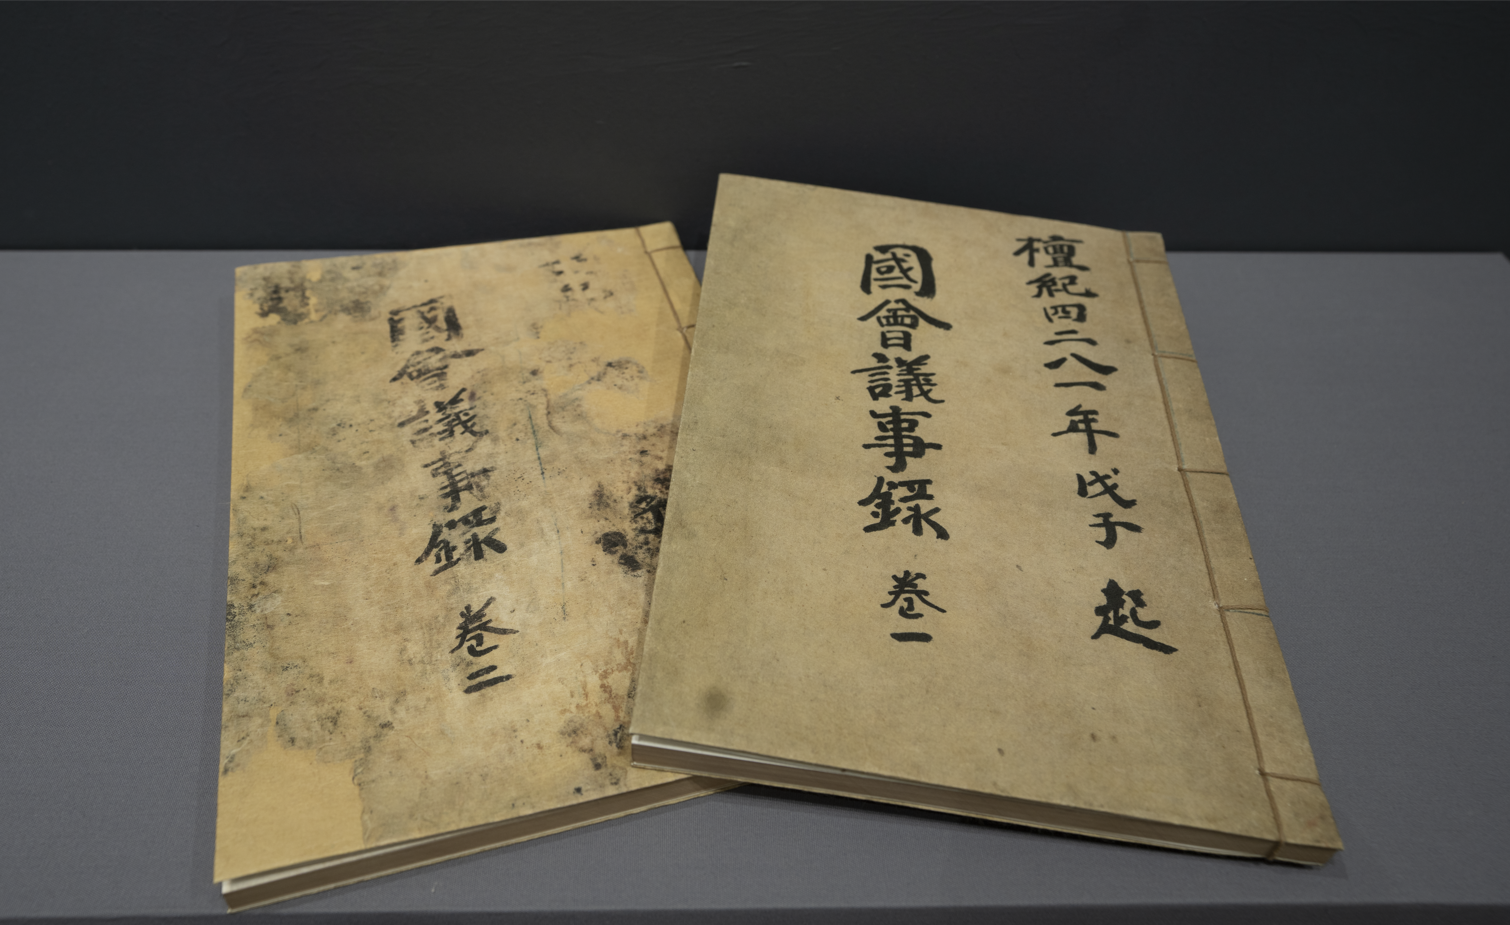 檀紀四二八一年戊子 起
國會議事録 卷一
國會議事録 卷二